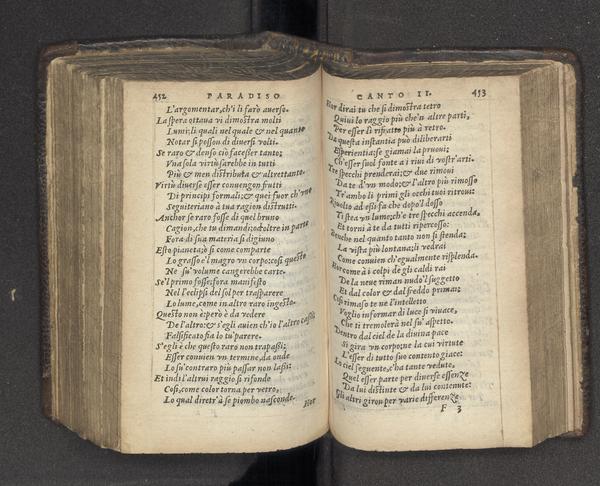 452 PARADISO
L'argomentar, ch'i li farò auerso.
La spera ottaua vi dimostra molti
Lumi; li quali nel quale & nel quanto
Notar si posson di diuersi volti.
Se raro & denso ciò facesser tanto;
Vna sola virtù sarebbe in tutti
Più & men distributa & altrettanto.
Virtù diuerse esser conuengon frutti
Di principi formali; & quei fuor ch'vno
Seguiteriano à tua ragion distrutti.
Anchor se raro fosse di quel bruno
Cagion, che tu dimandi; od oltre in parte
Fora di sua materia si digiuno
Esto pianeta; ò si come comparte
Lo grasso e'l magro vn corpo; così questo
Nel su' volume cangerebbe carte.
Se'l primo fosse; fora manifesto
Nel l'eclipsi del sol per trasparere
Lo lume, come in altro raro ingesto.
Questo non è: però è da vedere
De l'altro: & s'egli auien ch'io l'altro cassi;
Falsificato fia lo tu' parere.
S'egli è che questo raro non trapassi;
Esser conuien vn termine, da onde
Lo su' contraro più passar non lassi:
Et indi l'altrui raggio si rifonde
Così, come color torna per vetro,
Lo qual diretr'à se piombo nasconde.
Hor
CANTO II. 453
Hor dirai tu che si dimostra tetro
Quiui lo raggio più che'n altre parti,
Per esser lì rifratto più à retro.
Da questa instantia può diliberarti
Esperientia; se giamai la pruoui;
Ch'esser suol fonte a i riui di vostr'arti.
Tre specchi prenderai; & due rimoui
Da te d'vn modo; & l'altro più rimosso
Tr'ambo li primi gli occhi tuoi ritroui:
Riuolto ad essi fa che dopo'l dosso
Ti stea vn lume; ch'e tre specchi accenda,
Et torni à te da tutti ripercosso:
Benche nel quanto tanto non si stenda;
La vista più lontana; li vedrai
Come conuien ch'egualmente risplenda.
Hor come à i colpi de gli caldi rai
De la neue riman nudo'l suggetto
Et dal color & dal freddo primai;
Così rimaso te ne l'intelletto
Voglio informar di luce si viuace,
Che ti tremolerà nel su' aspetto.
Dentro dal ciel de la diuina pace
Si gira vn corpo; ne la cui virtute
L'esser di tutto suo contento giace:
Lo ciel seguente, c'ha tante vedute,
Quel esser parte per diuerse essenze
Da lui distinte & da lui contenute:
Gli altri giron per varie differenze
F 3